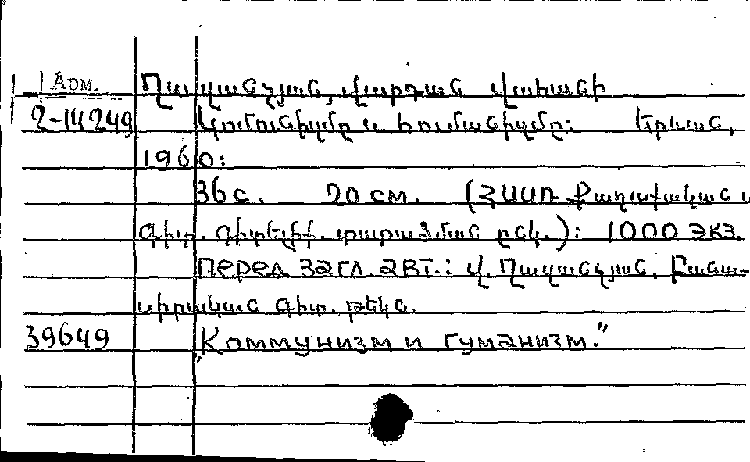 Арм. Ղազանչյան, Վարդան Վահանի
2-14249 Կոմունիզմը և հումանիզմը: Երևան,
1960:
36 с. 20 см. (ՀՍՍՌ Քաղաքական և
գիտ. գիտելիք. տարածման ընկ.): 1000 экз.
Перед загл. авт.: Վ. Ղազանչյան. Բանա-
սիրական գիտ. թեկն.
39649 "Коммунизм и гуманизм."